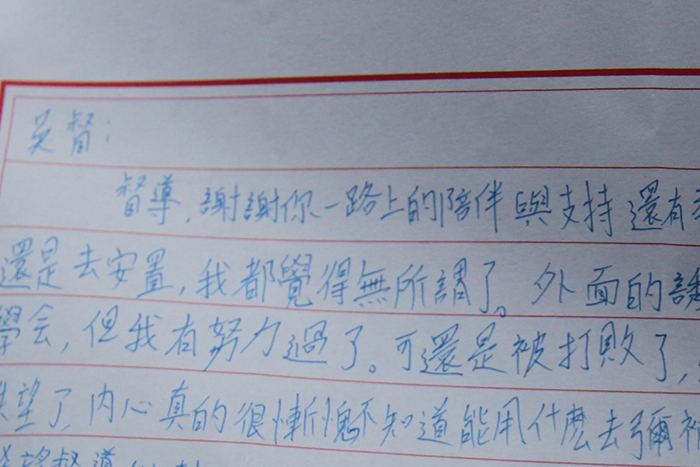 吳督：
督導，謝謝你一路上的陪伴與支持還有
還是去安置，我都覺得無所謂了。外面的誘
學會，但我有努力過了。可還是被打敗了，
望了，內心真的很慚愧不知道能用什麼去彌補
望督導